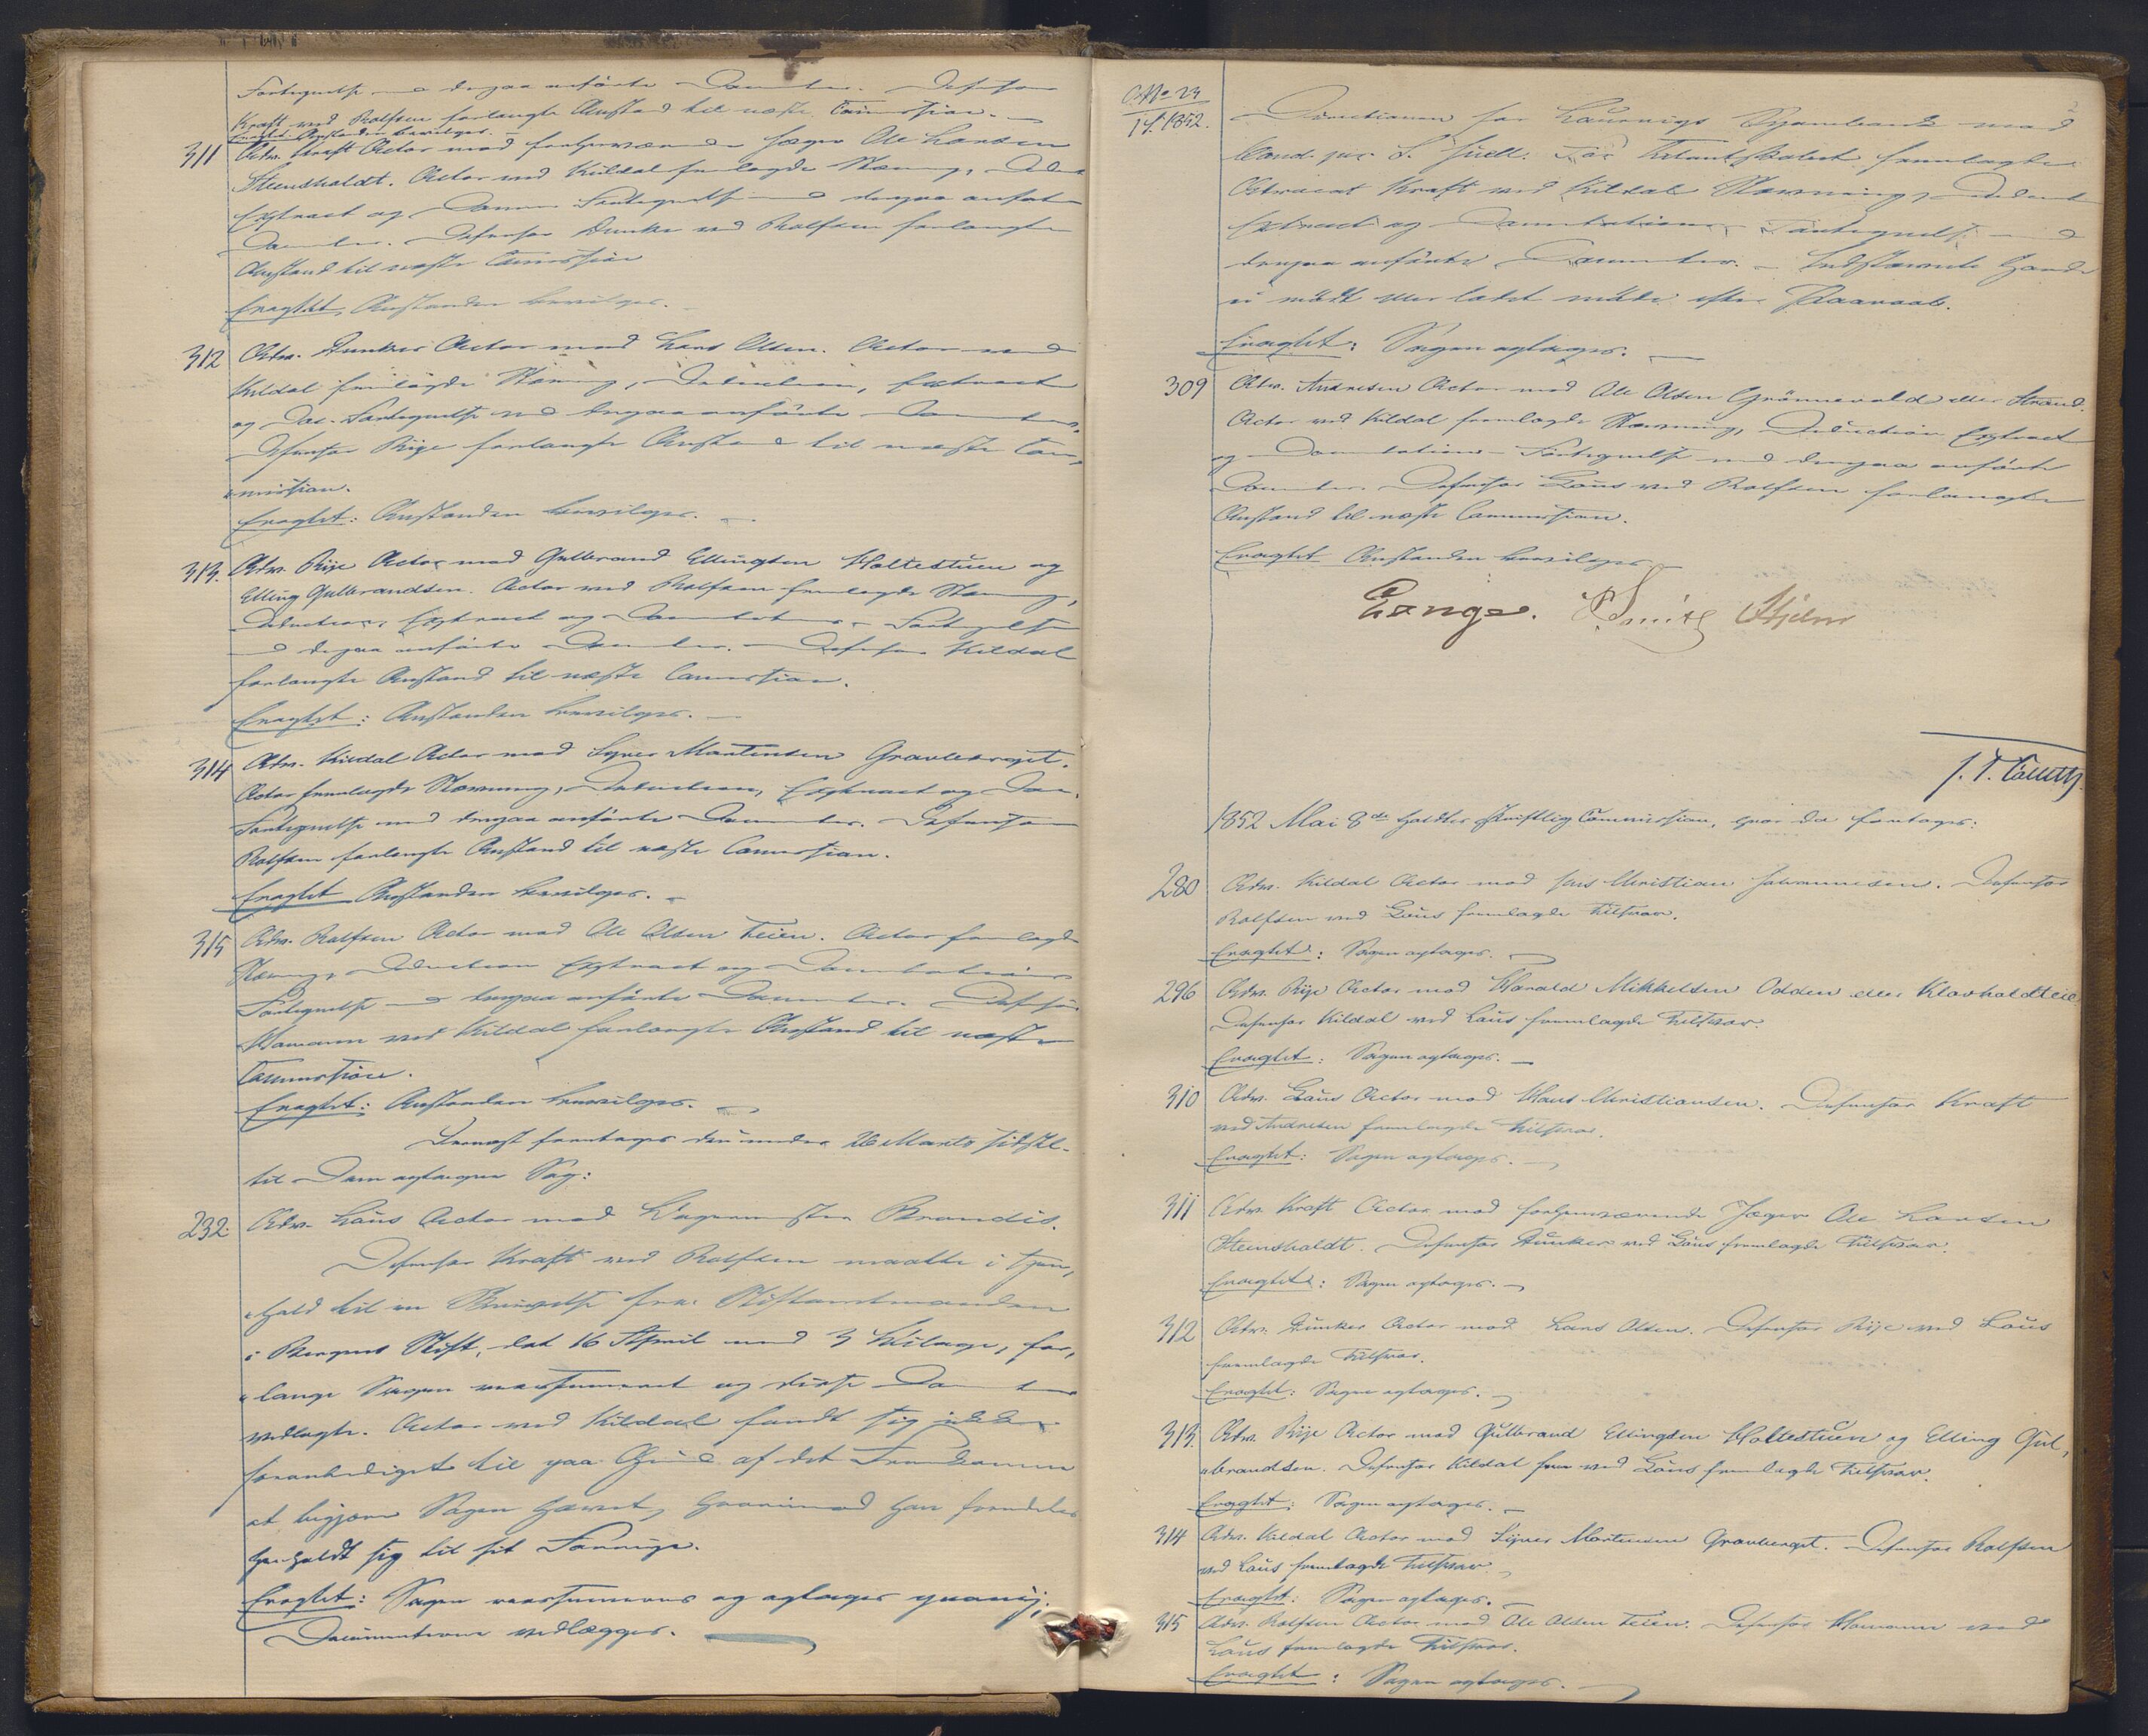 Fortegnelse med derpaa anførte Documenter. Defensor
Kraft ved Rolfsen forlangte Anstand til næste Commission.
Eragtet Anstanden bevilges.
311 Adv. Kraft Actor mod forhenværende Jæger Ole Larsen
Steensholdt. Actor ved Kildal fremlagde Stævning, Deduction
Extract og Docum. Fortegnelse med derpaa anførte
Documenter. Defensor Dunker ved Rolfsen forlangte
Anstand til næste Commission
Eragtet, Anstanden bevilges.
312 Adv. Dunker Actor mod Lars Olsen. Actor ved
Kildal fremlagde Stævning, Deduction, Extract
og Doc. Fortegnelse med derpaa anførte Documenter.
Defensor Rije forlangte Anstand til næste Com„
„mission.
Eragtet: Anstanden bevilges.
313. Adv. Rije Actor mod Gulbrand Ellingsen Holtestuen og
Elling Gulbrandsen. Actor ved Rolfsen fremlagde Stævning,
Deduction, Extract og Documentations Fortegnelse
med derpaa anførte Documenter. Defensor Kildal
forlangte Anstand til næste Commission.
Eragtet: Anstanden bevilges.
314 Adv. Kildal Actor mod Syver Mortensen Gravberget.
Actor fremlagde Stævning, Deduction, Extract og Doc.
Fortegnelse med derpaa anførte Documenter. Defensor
Rolfsen forlangte Anstand til næste Commission.
Eragtet Anstanden bevilges.
315 Adv. Rolfsen Actor mod Ole Olsen Teien. Actor fremlagde
Stævning, Deduction Extract og Documentations
Fortegnelse med derpaa anførte Documenter. Defensor
Homann ved Kildal forlangte Anstand til næste
Commission.
Eragtet: Anstanden bevilges.
Dernæst foretages den under 26 Marts sidstl.
til Dom optagne Sag:
232. Adv. Lous Actor mod Vagtmester Brandis.
Defensor Kraft ved Rolfsen maatte i Hen„
„hold til en Skrivelse fra Stiftamtmanden
i Bergens Stift, dat 16 April med 3 Bilage, for„
„lange Sagen reassumeret og disse Documenter
vedlagte. Actor ved Kildal fandt sig ikke
foranlediget til paa Grund af det Fremkomne
at begjære Sagen hævet, hvorimod han fremdeles
henholdt sig til sit Forrige.
Eragtet: Sagen reassumeres og optages paany;
Documenterne vedlægges.
No 23
1/5 1852.
Directionen for Laurvigs Sparebank mod
Cand. jur. S. Juell. For Citantskabet fremlagde
Advocat Kraft ved Kildal Stævning, Deduct.
Extract og Documentations Fortegnelse med
derpaa anførte Documenter. Indstævnte havde
ei mødt eller ladet møde efter Paaraab.
Eragtet: Sagen optages.
309 Adv. Andresen Actor mod Ole Olsen Grønnevold eller Strand.
Actor ved Kildal fremlagde Stævning, Deduction Extract
og Documentations-Fortegnelse med derpaa anførte
Documenter. Defensor Lous ved Rolfsen forlangte
Anstand til næste Commission.
Eragtet Anstanden bevilges
Lange. Smith Hjelm
1852 Mai 8de holdtes skriftlig Commission, hvor da foretages:
280 Adv. Kildal Actor mod Jens Christian Johannesen. Defensor
Rolfsen ved Lous fremlagde Tilsvar.
Eragtet: Sagen optages.
296 Adv. Rije Actor mod Harald Mikkelsen Odden eller Klovholdteie
Defensor Kildal ved Lous fremlagde Tilsvar.
Eragtet: Sagen optages.
310 Adv. Lous Actor mod Hans Christiansen. Defensor Kraft
ved Andresen fremlagde Tilsvar.
Eragtet: Sagen optages.
311 Adv. Kraft Actor mod forhenværende Jæger Ole Larsen
Steensholdt. Defensor Dunker ved Lous fremlagde Tilsvar.
Eragtet: Sagen optages.
312 Adv. Dunker Actor mod Lars Olsen. Defensor Rije ved Lous
fremlagde Tilsvar.
Eragtet: Sagen optages.
313. Adv. Rije Actor mod Gulbrand Ellingsen Holtestuen og Elling Gul„
„brandsen. Defensor Kildal ved Lous fremlagde Tilsvar.
Eragtet: Sagen optages.
314 Adv. Kildal Actor mod Syver Mortensen Gravberget. Defensor Rolfsen
ved Lous fremlagde Tilsvar.
Eragtet: Sagen optages.
315 Adv. Rolfsen Actor mod Ole Olsen Teien. Defensor Homann ved
Lous fremlagde Tilsvar.
Eragtet: Sagen optages.